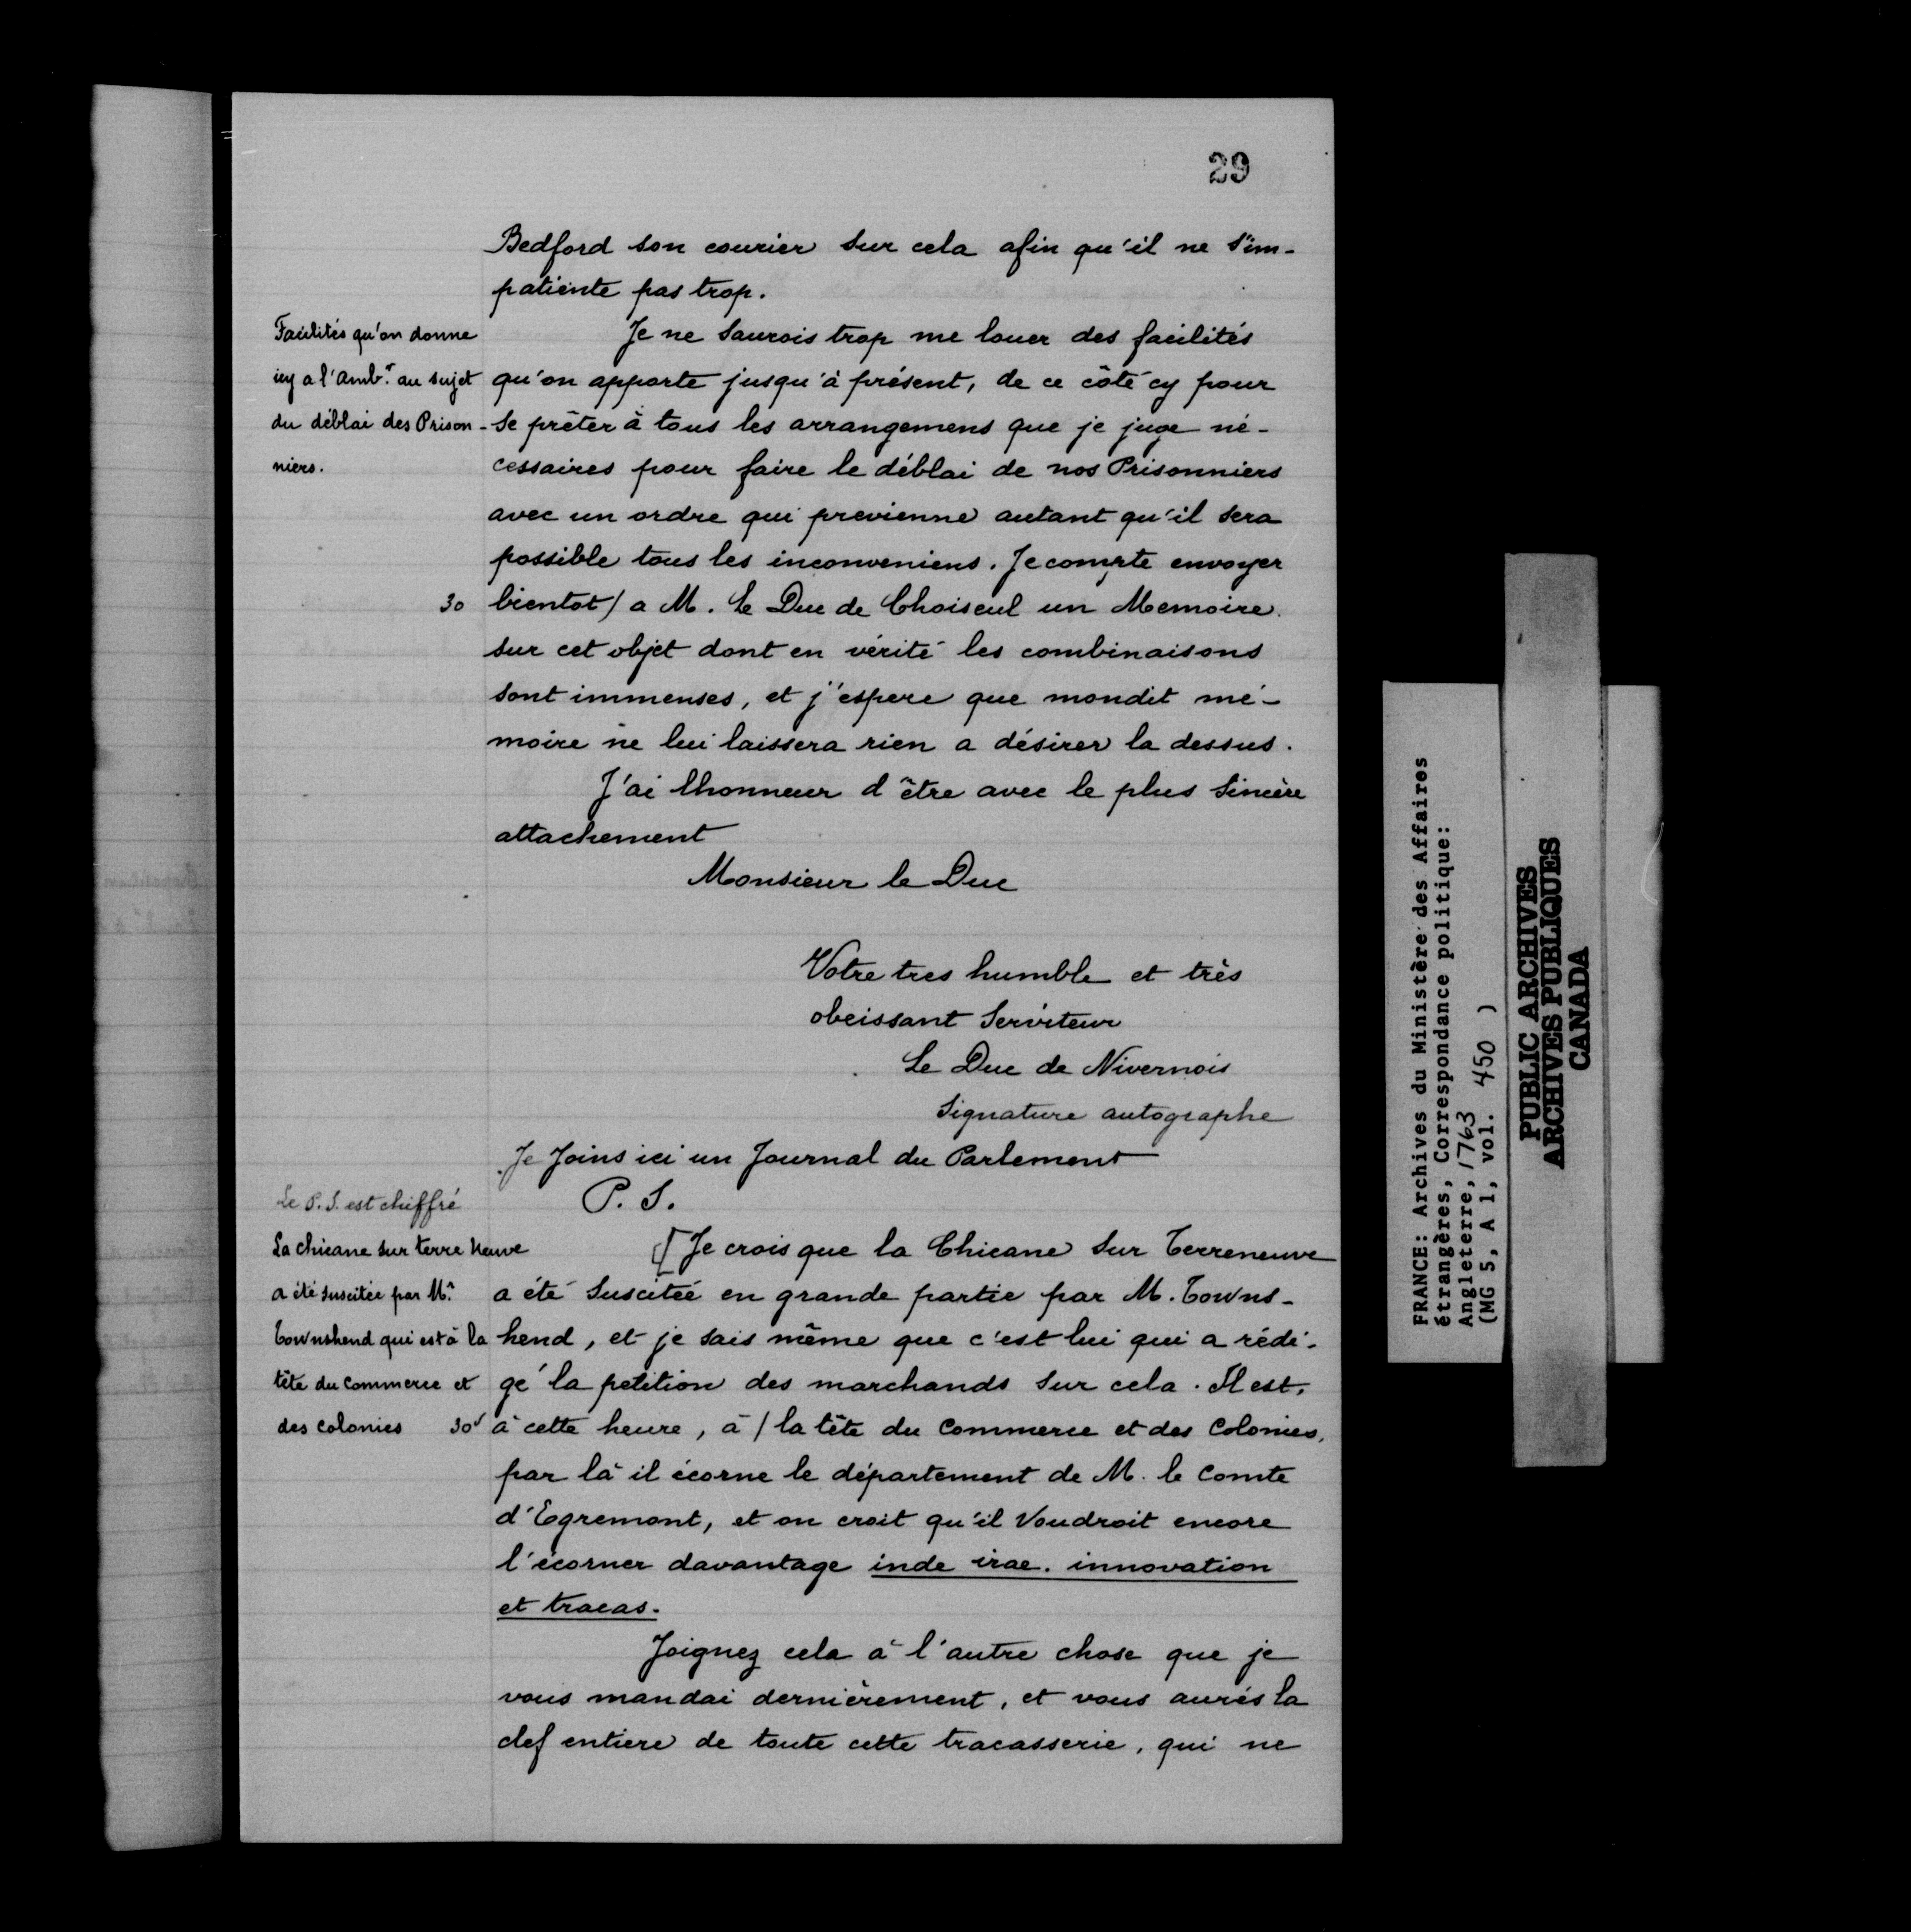 29
Bedford son courier sur cela afin qu'il ne s'im-
patiente pas trop.
Facilités qu'on donne
icy a l'amb.r au sujet
du déblai des Prison-
niers.
Je ne saurois trop me louer des facilités
qu'on apporte jusqu'à présent, de ce côté cy pour
se prêter à tous les arrangemens que je juge né-
cessaires pour faire le déblai de nos Prisonniers
avec un ordre qui previenne autant qu'il sera
possible tous les inconveniens. Je compte envoyer
30 bientot / a M. le Duc de Choiseul un Memoire
sur cet objet dont en vérité les combinaisons
sont immenses, et j'espere que mondit mé-
moire ne lui laissera rien a désirer la dessus.
J'ai lhonneur d'être avec le plus sincère
attachement
Monsieur le Duc
Votre tres humble et très
obeissant Serviteur
Le Duc de Nivernois
Signature autographe
Je Joins ici un Journal du Parlement
Le P.S. est chiffré
P. S.
La chicane sur terre neuve
a été suscitée par Mr.
Townshend qui est à la
tête du Commerce et
des colonies
[Je crois que la Chicane sur Terreneuve
a été Suscitée en grande partie par M. Towns-
hend, et je sais même que c'est lui qui a rédi-
gé la petition des marchands sur cela. Il est,
30v à cette heure, à / la tête du Commerce et des Colonies,
par là il écorne le département de M. le Comte
d'Egremont, et on croit qu'il Voudroit encore
l'écorner davantage inde irae. innovation
et tracas.
Joignez cela à l'autre chose que je
vous mandai dernièrement, et vous aurés la
clef entiere de toute cette tracasserie, qui ne
FRANCE: Archives du Ministère des Affaires
étrangères, Correspondance politique:
Angleterre, 1763
(MG 5, A 1, vol. 450 )
PUBLIC ARCHIVES
ARCHIVES PUBLIQUES
CANADA